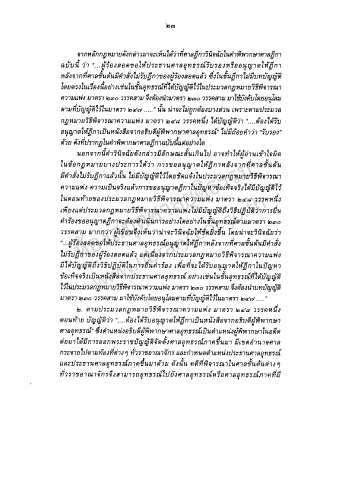 ๒๓
จากหลักกฎหมายดังกล่าวมาจะเห็นได้ว่าที่ศาลฎีกาวินิจฉัยในคำพิพากษาศาลฎีกา
ฉบับนี้ ว่า "...ผู้ร้องสอดขอให้ประธานศาลอุทธรณ์รับรองหรืออนุญาตให้ฎีกา
หลังจากที่ศาลชั้นต้นมีคำสั่งไม่รับฎีกาของผู้ร้องสอดแล้ว ซึ่งในชั้นฎีกาไม่มีบทบัญญัติ
โดยตรงในเรื่องนี้อย่างเช่นในชั้นอุทธรณ์ที่ได้บัญญัติไว้ในประมวลกฎหมายวิธีพิจารณา
ความแพ่ง มาตรา ๒๓๐ วรรคสาม จึงต้องนำมาตรา ๒๓๐ วรรคสาม มาใช้บังคับโดยอนุโลม
ตามที่บัญญัติไว้ในมาตรา ๒๔๗ ....." นั้น น่าจะไม่ถูกต้องบางส่วน เพราะตามประมวล
กฎหมายวิธีพิจารณาความแพ่ง มาตรา ๒๔๘ วรรคหนึ่ง ได้บัญญัติว่า "....ต้องได้รับ
อนุญาตให้ฎีกาเป็นหนังสือจากอธิบดีผู้พิพากษาศาลอุทธรณ์" ไม่มีถ้อยคำว่า "รับรอง"
ด้วย ดังที่ปรากฏในคำพิพากษาศาลฎีกาฉบับนี้แต่อย่างใด
นอกจากนี้คำวินิจฉัยดังกล่าวมีลักษณะสั้นเกินไป อาจทำให้ผู้อ่านเข้าใจผิด
ในข้อกฎหมายบางประการได้ว่า การขออนุญาตให้ฎีกาหลังจากที่ศาลชั้นต้น
มีคำสั่งไม่รับฎีกาแล้วนั้น ไม่มีบัญญัติไว้โดยชัดแจ้งในประมวลกฎหมายวิธีพิจารณา
ความแพ่ง ความเป็นจริงแล้วการขออนุญาตฎีกาในปัญหาข้อเท็จจริงได้มีบัญญัติไว้
ในตอนท้ายของประมวลกฎหมายวิธีพิจารณาความแพ่ง มาตรา ๒๔๘ วรรคหนึ่ง
เพียงแต่ประมวลกฎหมายวิธีพิจารณาความแพ่งไม่มีบัญญัติถึงวิธีปฏิบัติว่าการยื่น
คำร้องขออนุญาตฎีกาจะต้องดำเนินการอย่างใดอย่างในชั้นอุทธรณ์ตามมาตรา ๒๓๐
วรรคสาม มากกว่า ผู้เขียนจึงเห็นว่าน่าจะวินิจฉัยให้ชัดยิ่งขึ้น โดยน่าจะวินิจฉัยว่า
"...ผู้ร้องสอดขอให้ประธานศาลอุทธรณ์อนุญาตให้ฎีกาหลังจากที่ศาลชั้นต้นมีคำสั่ง
ไม่รับฎีกาของผู้ร้องสอดแล้ว แต่เนื่องจากประมวลกฎหมายวิธีพิจารณาความแพ่ง
มิได้บัญญัติถึงวิธีปฏิบัติในการยื่นคำร้อง เพื่อที่จะได้รับอนุญาตให้ฎีกาในปัญหา
ข้อเท็จจริงเป็นหนังสือจากประธานศาลอุทธรณ์ อย่างเช่นในชั้นอุทธรณ์ที่ได้บัญญัติ
ไว้ในประมวลกฎหมายวิธีพิจารณาความแพ่ง มาตรา ๒๓๐ วรรคสาม จึงต้องนำบทบัญญัติ
มาตรา ๒๓๐ วรรคสาม มาใช้บังคับโดยอนุโลมตามที่บัญญัติไว้ในมาตรา ๒๔๗ ....."
๒. ตามประมวลกฎหมายวิธีพิจารณาความแพ่ง มาตรา ๒๔๘ วรรคหนึ่ง
ตอนท้าย บัญญัติว่า "....ต้องได้รับอนุญาตให้ฎีกาเป็นหนังสือจากอธิบดีผู้พิพากษา
ศาลอุทธรณ์" ซึ่งตำแหน่งอธิบดีผู้พิพากษาศาลอุทธรณ์เป็นตำแหน่งผู้พิพากษาในอดีต
ต่อมาได้มีการออกพระราชบัญญัติจัดตั้งศาลอุทธรณ์ภาคขึ้นมา มีเขตอำนาจศาล
กระจายไปตามท้องที่ต่างๆ ทั่วราชอาณาจักร และกำหนดตำแหน่งประธานศาลอุทธรณ์
และประธานศาลอุทธรณ์ภาคขึ้นมาด้วย ดังนั้น คดีที่พิจารณาในศาลชั้นต้นต่างๆ
ทั่วราชอาณาจักรจึงสามารถอุทธรณ์ไปยังศาลอุทธรณ์หรือศาลอุทธรณ์ภาคที่มี